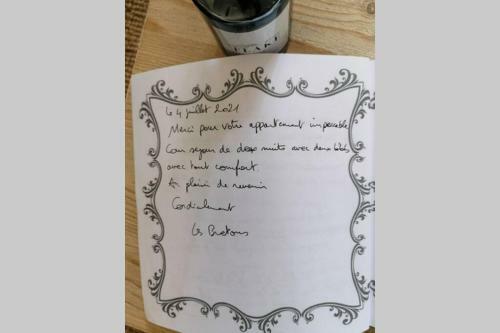 Le 4 juillet 2021
Merci pour votre appartement impeccable
séjour de deux nuits avec deux
avec tout confort.
plaisir de revenir
Cordialement
Les Bretons